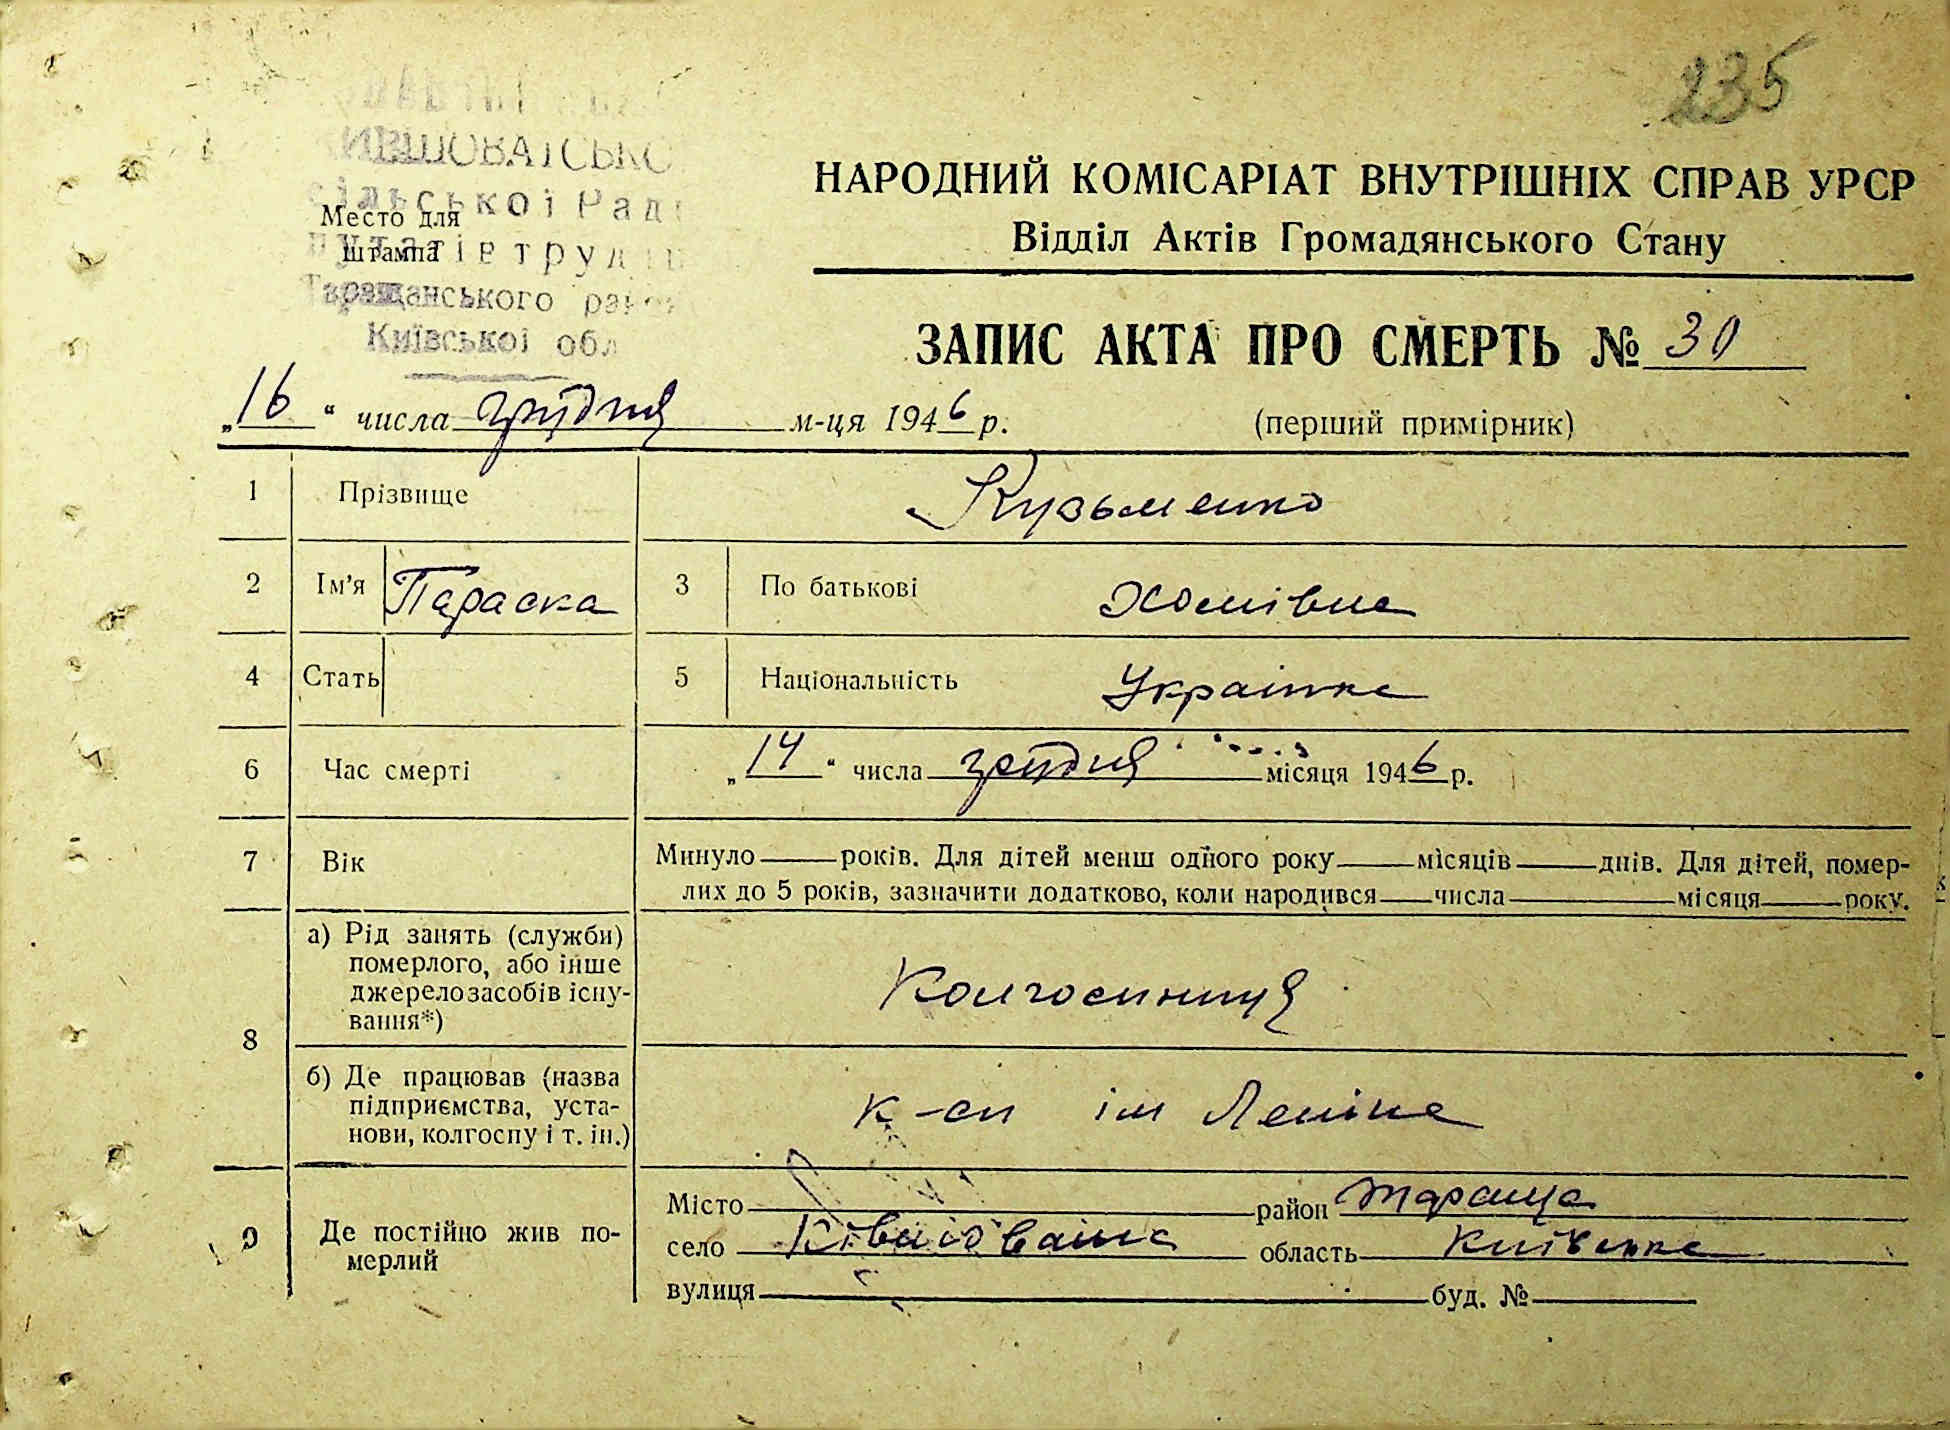 235
КІВШОВАТСЬКО
сільської Рад
Место для
штампа
путатів труд
Таращанського рай
Київської обл
НАРОДНИЙ КОМІСАРІАТ ВНУТРІШНІХ СПРАВ УРСР
Відділ Актів Громадянського Стану
ЗАПИС АКТА ПРО СМЕРТЬ № 30
„16“ числа грудня м-ця 1946 р. (перший примірник)
1 Прізвище Кузьменко
2 Ім'я Параска 3 По батькові Хомівна
4 Стать 5 Національність Українка
6 Час смерті „14“ числа грудня місяця 1946 р.
7 Вік Минуло — років. Для дітей менш одного року — місяців — днів. Для дітей, помер-
лих до 5 років, зазначити додатково, коли народився — числа — місяця — року.
8 а) Рід занять (служби)
померлого, або інше
джерело засобів існу-
вання*)
Колгоспниця
б) Де працював (назва
підприємства, уста-
нови, колгоспу і т. ін.)
к-сп ім Леніна
9 Де постійно жив по-
мерлий
Місто район Тараща
село Ківшовата область Київська
вулиця буд. №